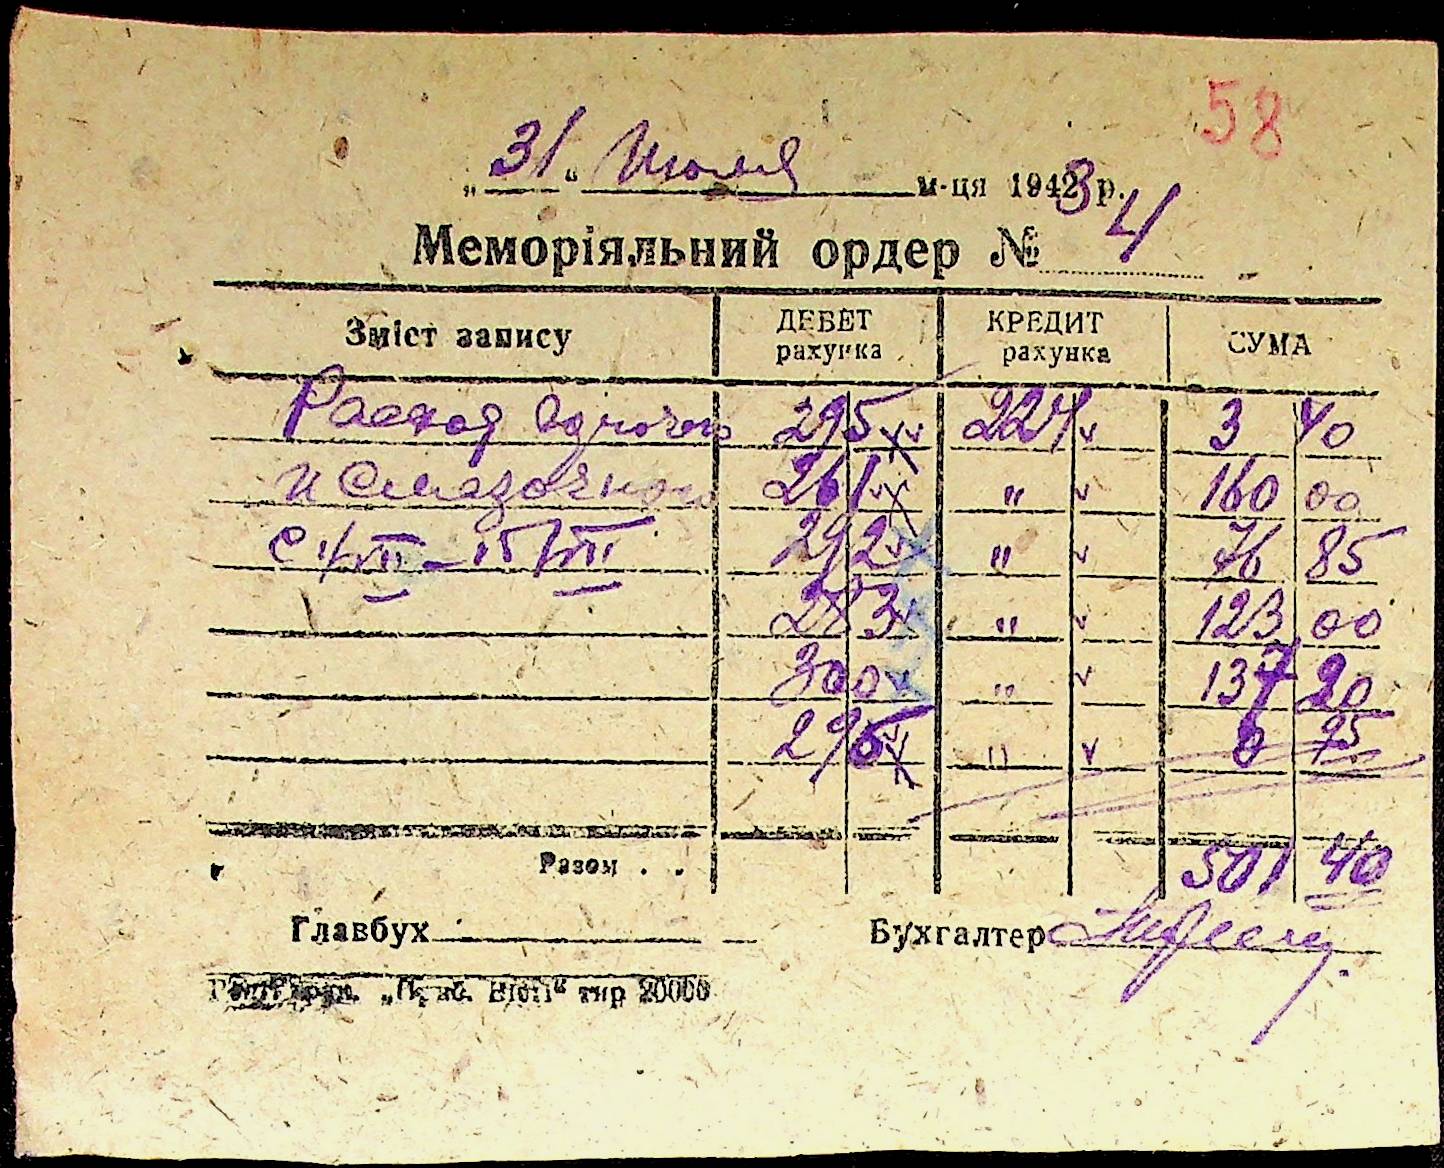 58
„31“ Июля м-ця 1943 р.
Меморіяльний ордер № 4
Зміст запису ДЕБЕТ рахунка КРЕДИТ рахунка СУМА
Расход 295 224 3 40
и Смазочного 261 " 160 00
с 1/VII – 15/VII 292 " 76 85
283 " 123 00
300 " 137 20
295 " 0 95
Разом . . 501 40
Главбух Бухгалтер
тир 20000